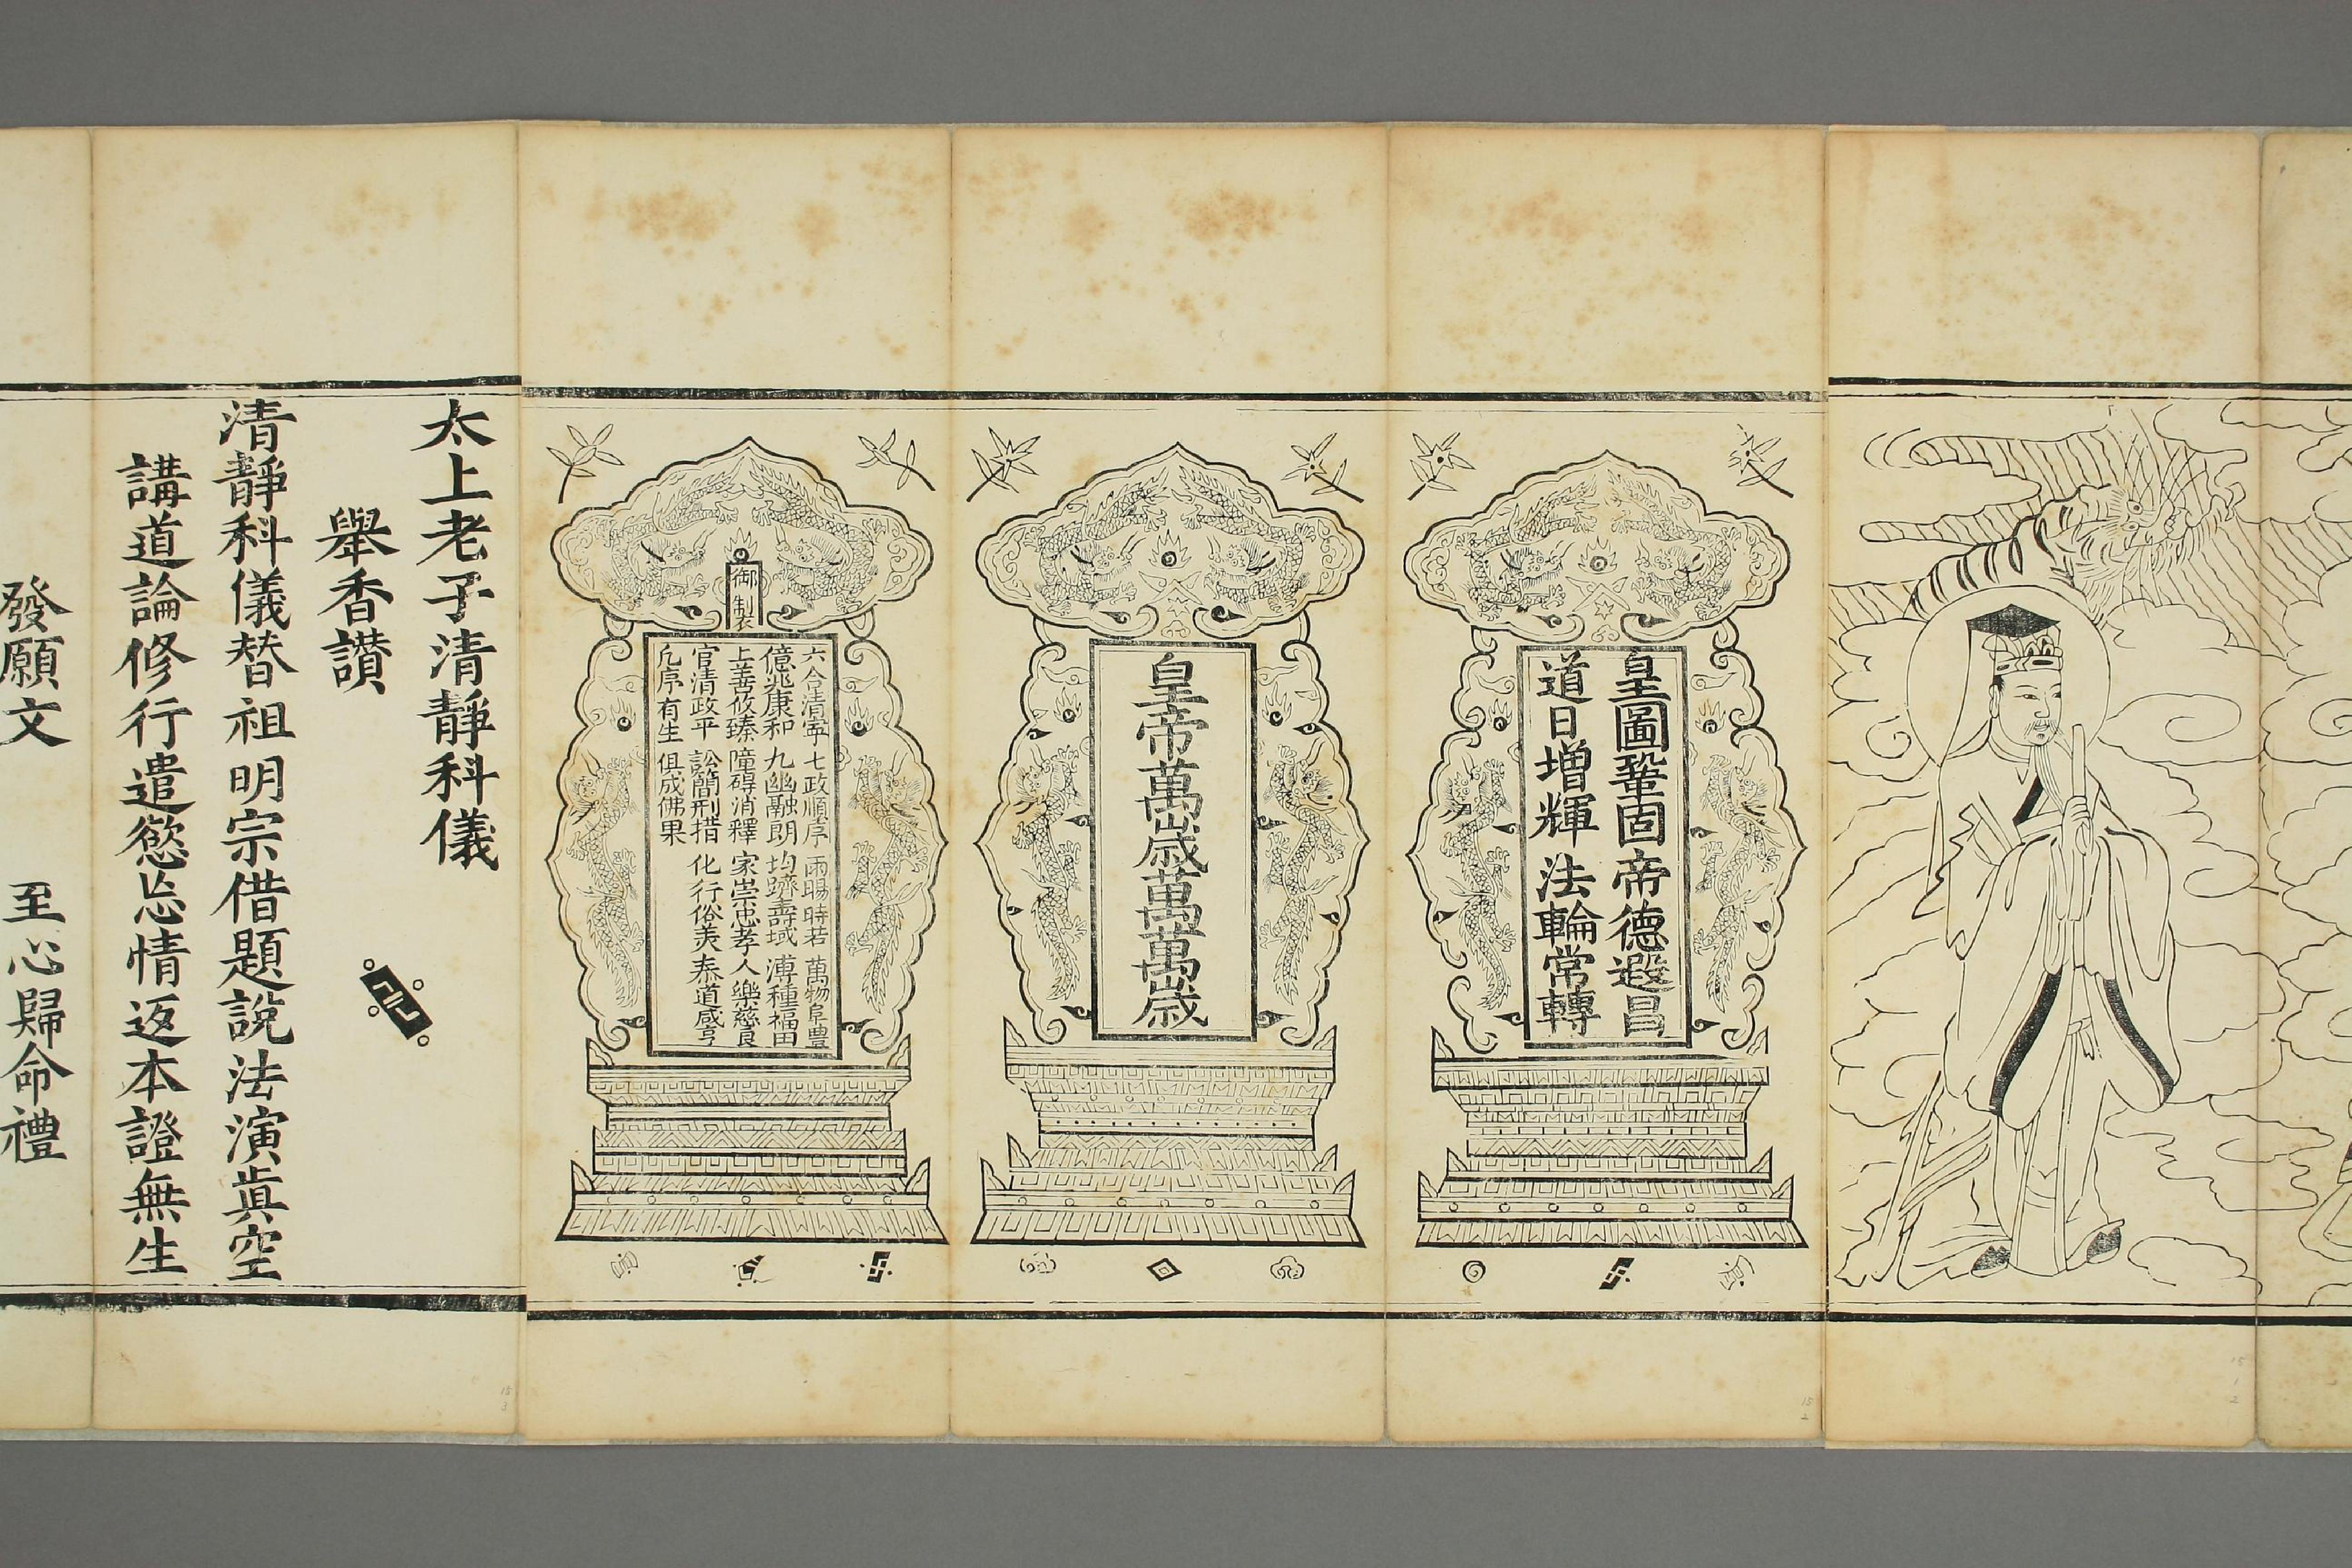 皇圖鞏固帝德遐昌
道日增輝法輪常轉
皇帝萬歲萬萬歲
御制衣
六合清寧七政順序雨暘時若萬物阜豊
億兆康和九幽融朗均躋壽域溥種福田
上善攸臻障碍消釋家崇忠孝人樂慈良
官清政平訟簡刑措化行俗美泰道咸亨
凢序有生俱成佛果
太上老子清靜科儀
舉香讚
清靜科儀替祖明宗借題說法演眞空
講道論修行遣慾忘情返本證無生
發願文 至心歸命禮